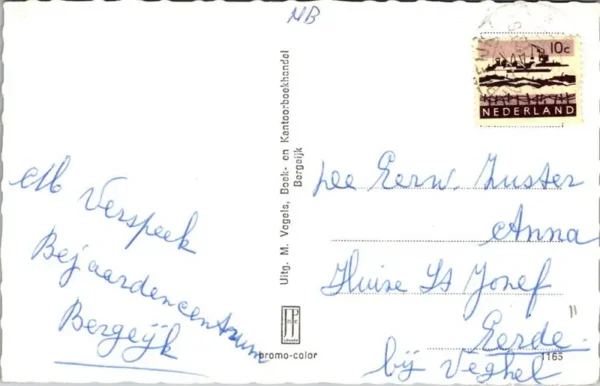 NB
10c
NEDERLAND
M Verspeek
Bejaardencentrum
Bergeijk
Uitg. M. Vogels, Boek- en Kantoorboekhandel
Bergeijk
promo-color
Eerw. Zuster
Anna
Huize St Jozef
Eerde.
bij Veghel
1165